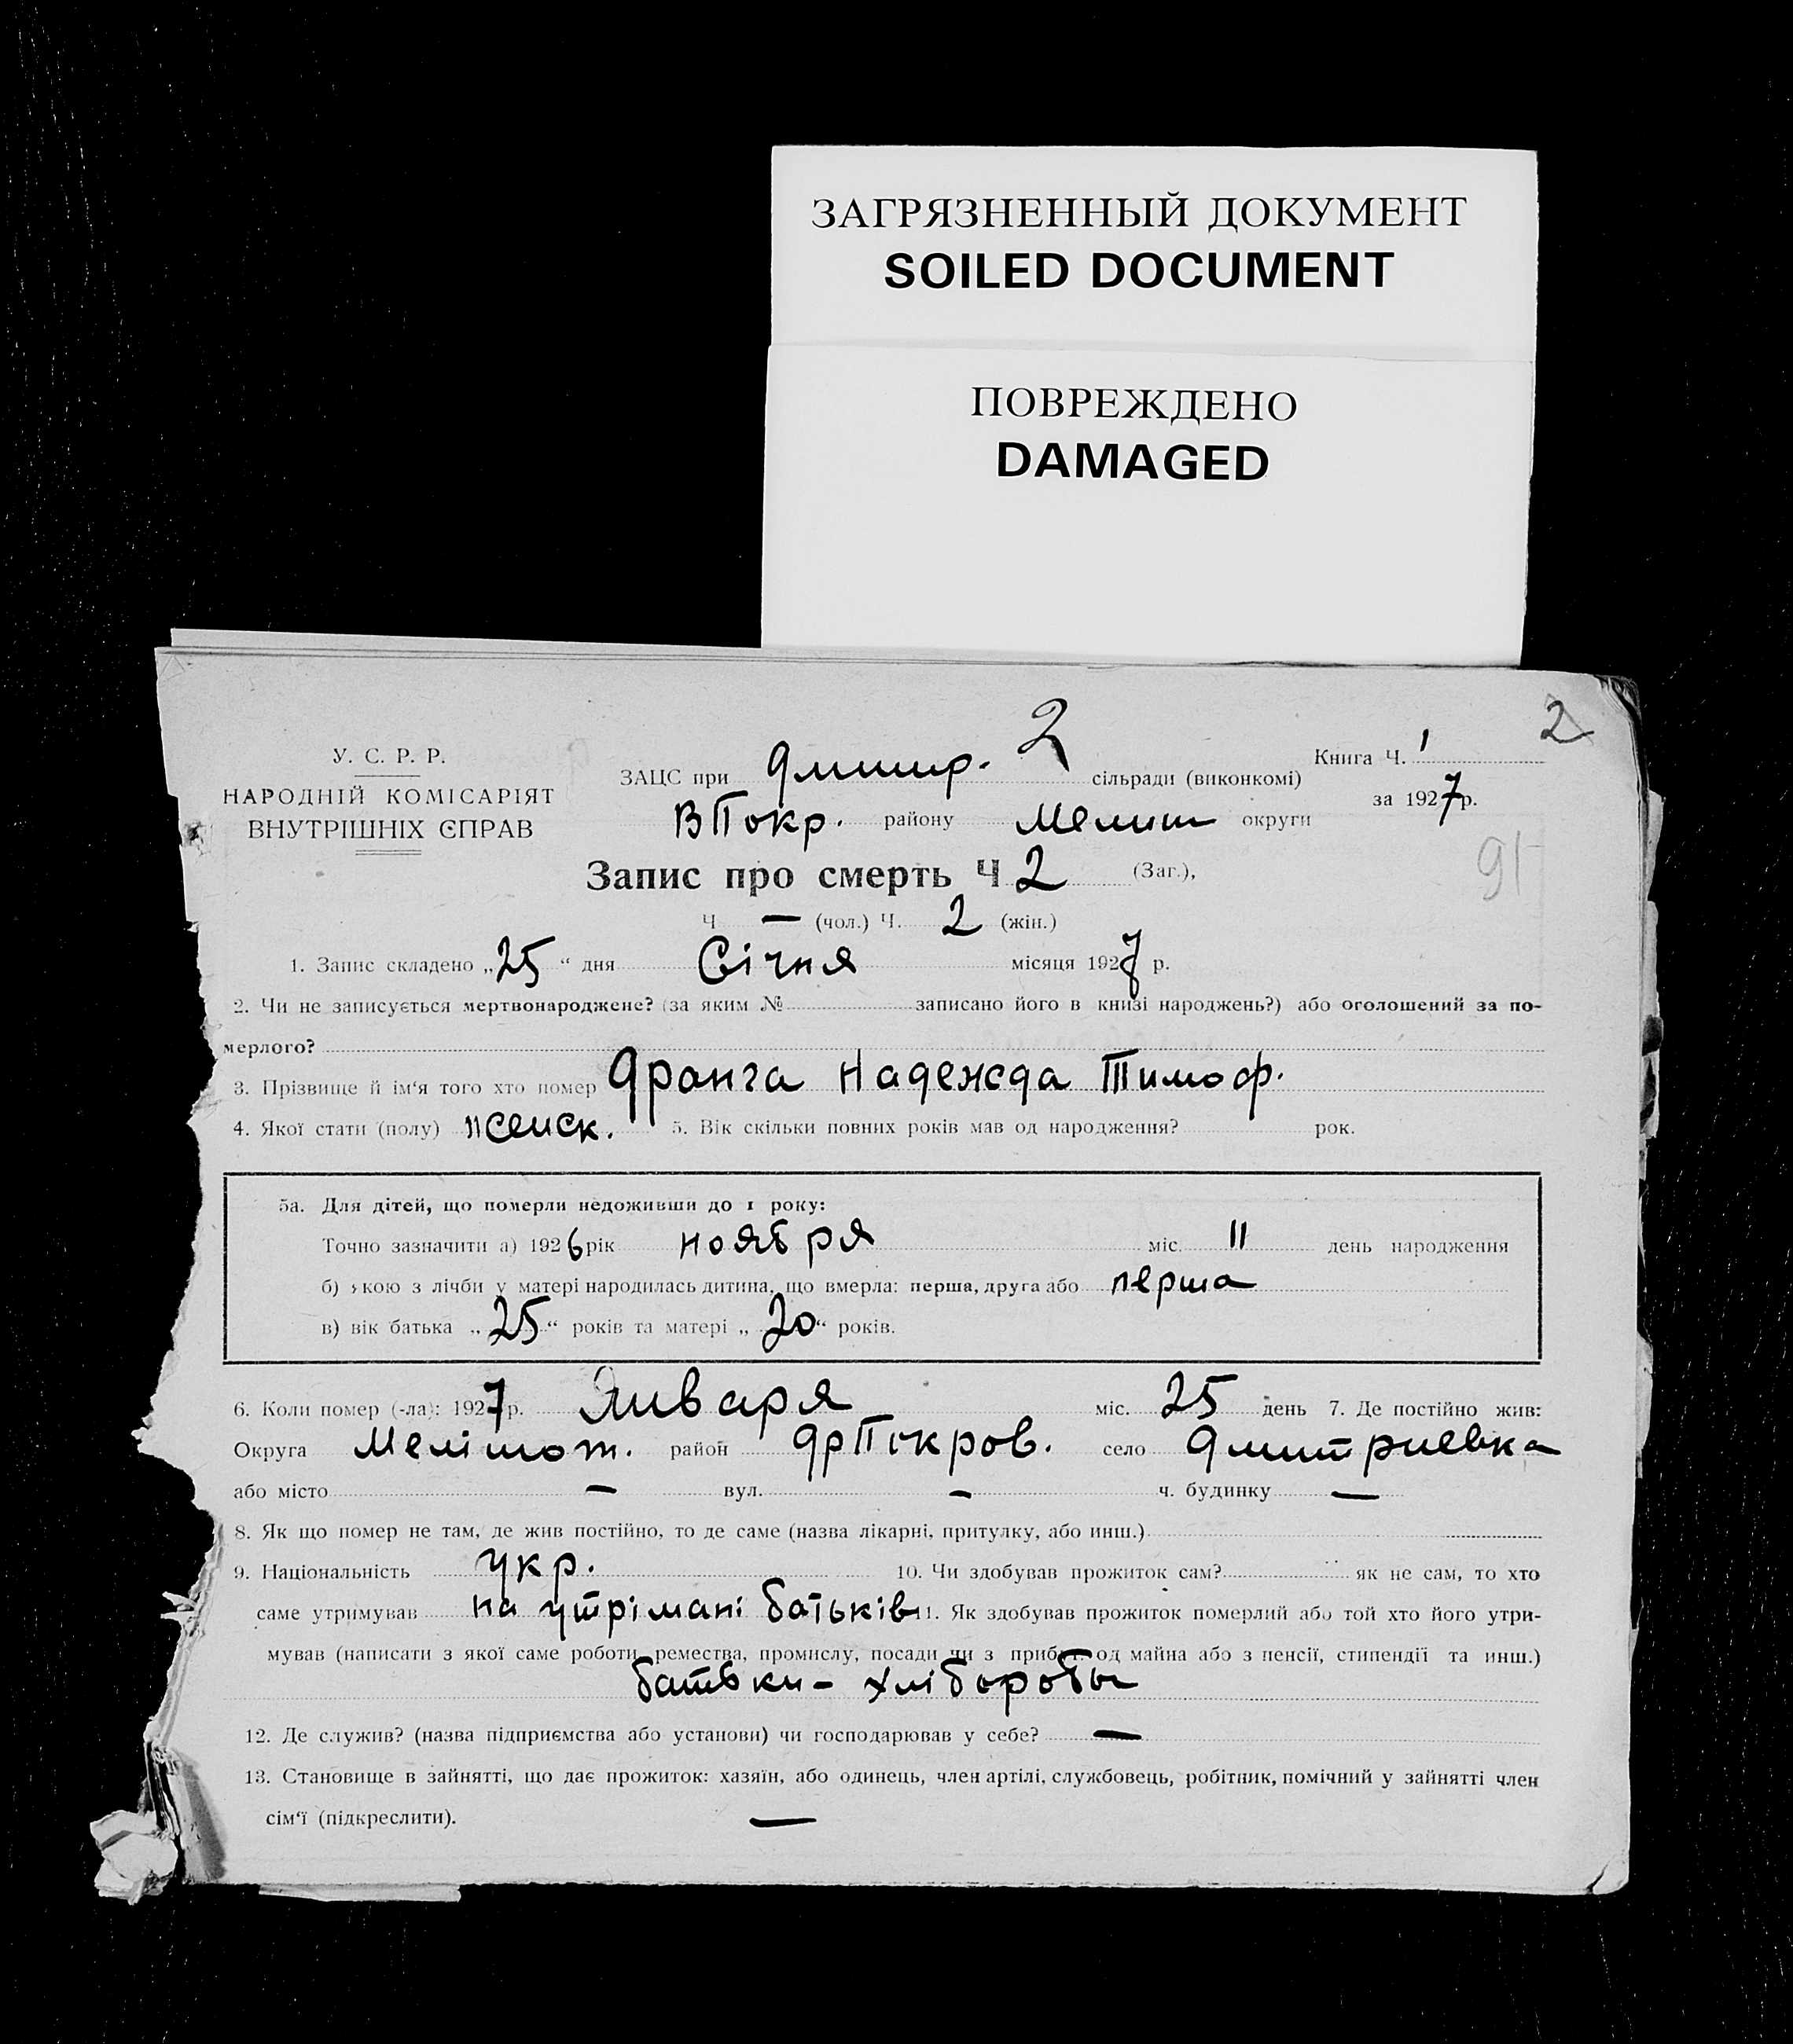 ЗАГРЯЗНЕННЫЙ ДОКУМЕНТ
SOILED DOCUMENT
ПОВРЕЖДЕНО
DAMAGED
2
2
У. С. Р. Р.
НАРОДНІЙ КОМІСАРІЯТ
ВНУТРІШНІХ ЄПРАВ
ЗАЦС при Дмитр. сільради (виконкомі)
Книга Ч. 1
за 1927 р.
ВПокр. району Мелит округи
91
Запис про смерть Ч 2 (Заг.),
Ч — (чол.) Ч. 2 (жін.)
1. Запис складено „25“ дня Січня місяця 1927 р.
2. Чи не записується мертвонароджене? (за яким № записано його в книзі народжень?) або оголошений за по-
мерлого?
3. Прізвище й ім‘я того хто помер Дранга Надежда Тимоф.
4. Якої стати (полу) женск. 5. Вік скільки повних років мав од народження? рок.
5а. Для дітей, що померли недоживши до 1 року:
Точно зазначити а) 1926 рік ноября міс. 11 день народження
б) якою з лічби у матері народилась дитина, що вмерла: перша, друга або перша
в) вік батька „25“ років та матері „20“ років.
6. Коли помер (-ла): 1927 р. Января міс. 25 день 7. Де постійно жив:
Округа Мелітоп. район ВрПокров. село Дмитриевка
або місто — вул. — ч. будинку —
8. Як що помер не там, де жив постійно, то де саме (назва лікарні, притулку, або инш.)
9. Національність укр. 10. Чи здобував прожиток сам? як не сам, то хто
саме утримував на утрімані батьків 11. Як здобував прожиток померлий або той хто його утри-
мував (написати з якої саме роботи, ремества, промислу, посади чи з приб. од майна або з пенсії, стипендії та инш.)
батьки - хлібороби
12. Де служив? (назва підприємства або установи) чи господарював у себе? —
13. Становище в зайнятті, що дає прожиток: хазяїн, або одинець, член артілі, службовець, робітник, помічний у зайнятті член
сім‘ї (підкреслити). —